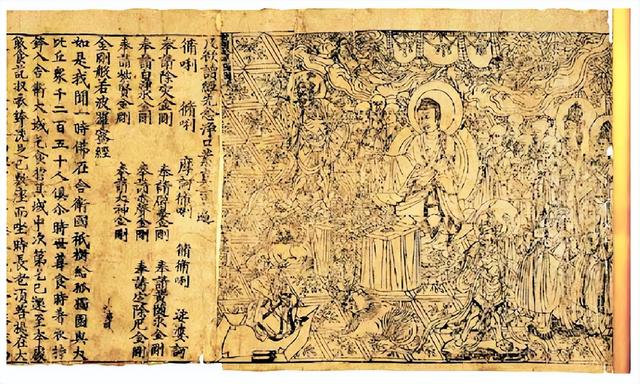 凡欲讀經先念淨口業真言一遍
脩唎 脩唎 摩訶脩唎 脩脩唎 娑婆訶
奉請除災金剛 奉請辟毒金剛 奉請黃隨求金剛
奉請白淨水金剛 奉請赤聲金剛 奉請定除厄金剛
奉請紫賢金剛 奉請大神金剛
金剛般若波羅蜜經
如是我聞一時佛在舍衛國祇樹給孤獨園與大
比丘衆千二百五十人俱尒時世尊食時著衣持
鉢入舍衛大城乞食於其城中次第乞已還至本處
飯食訖収衣鉢洗足已敷座而坐時長老須菩提在大